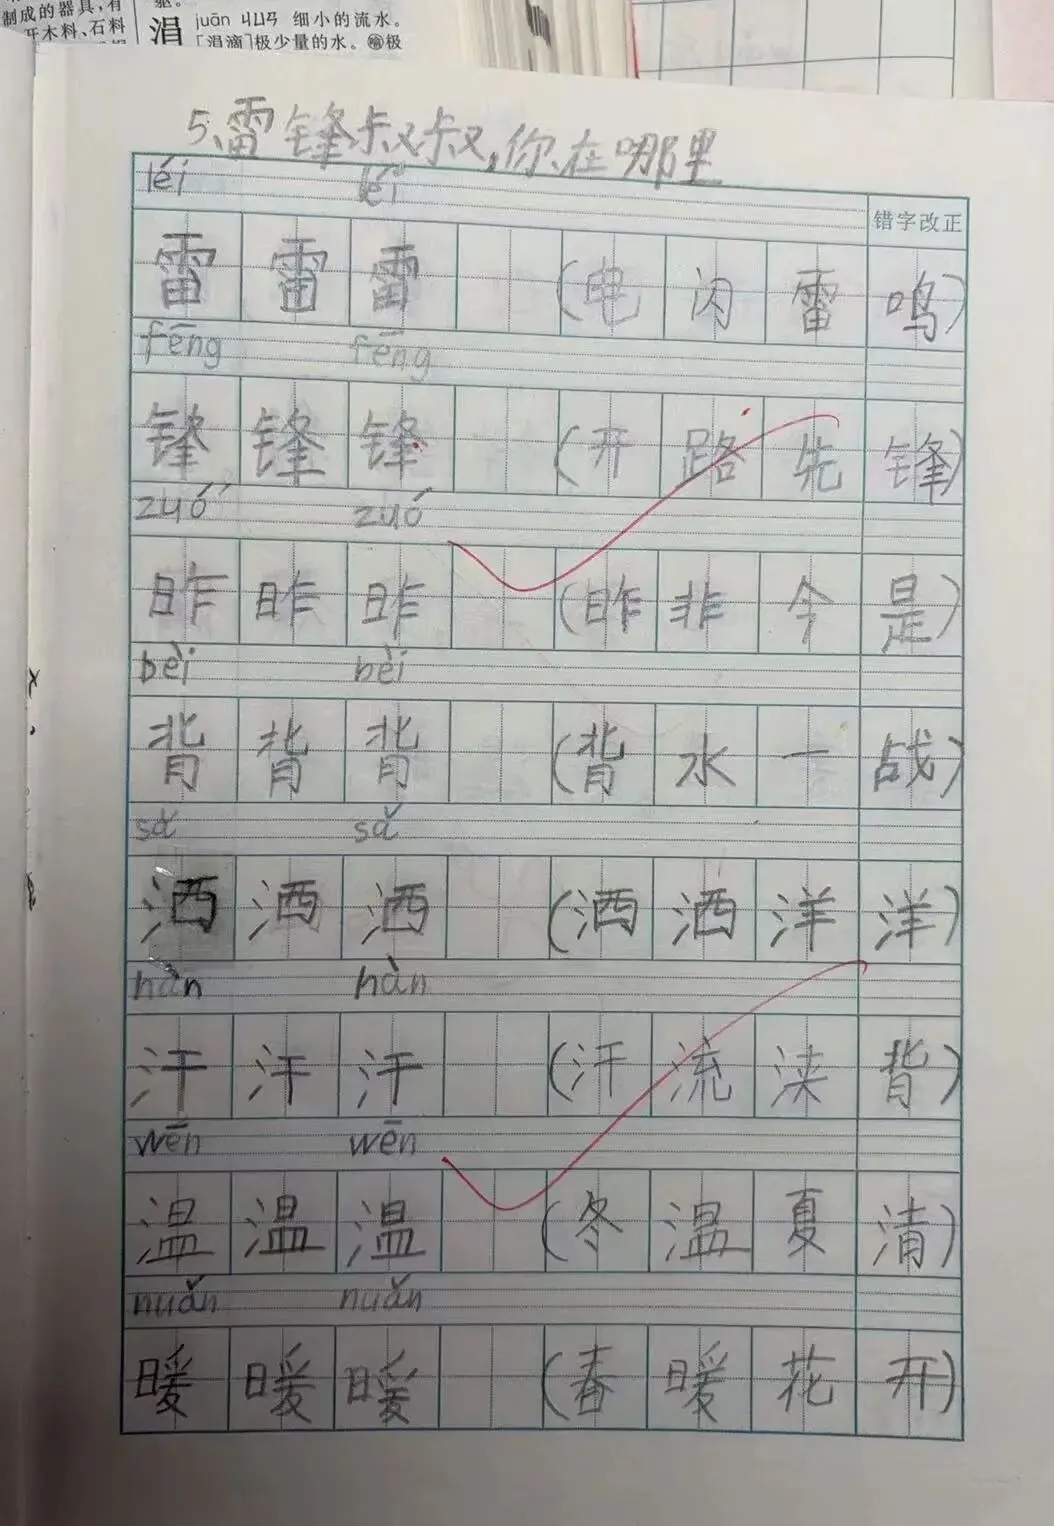 制成的器具,有
木料、石料
涓 juān ㄐㄩㄢ 细小的流水。
[涓滴]极少量的水。㊙极
5.雷锋叔叔,你在哪里
léi léi
错字改正
雷 雷 雷 (电闪雷鸣)
fēng fēng
锋 锋 锋 (开路先锋)
zuó zuó
昨 昨 昨 (昨非今是)
bèi bèi
背 背 背 (背水一战)
sǎ sǎ
洒 洒 洒 (洒洒洋洋)
hàn hàn
汗 汗 汗 (汗流浃背)
wēn wēn
温 温 温 (冬温夏清)
nuǎn nuǎn
暖 暖 暖 (春暖花开)